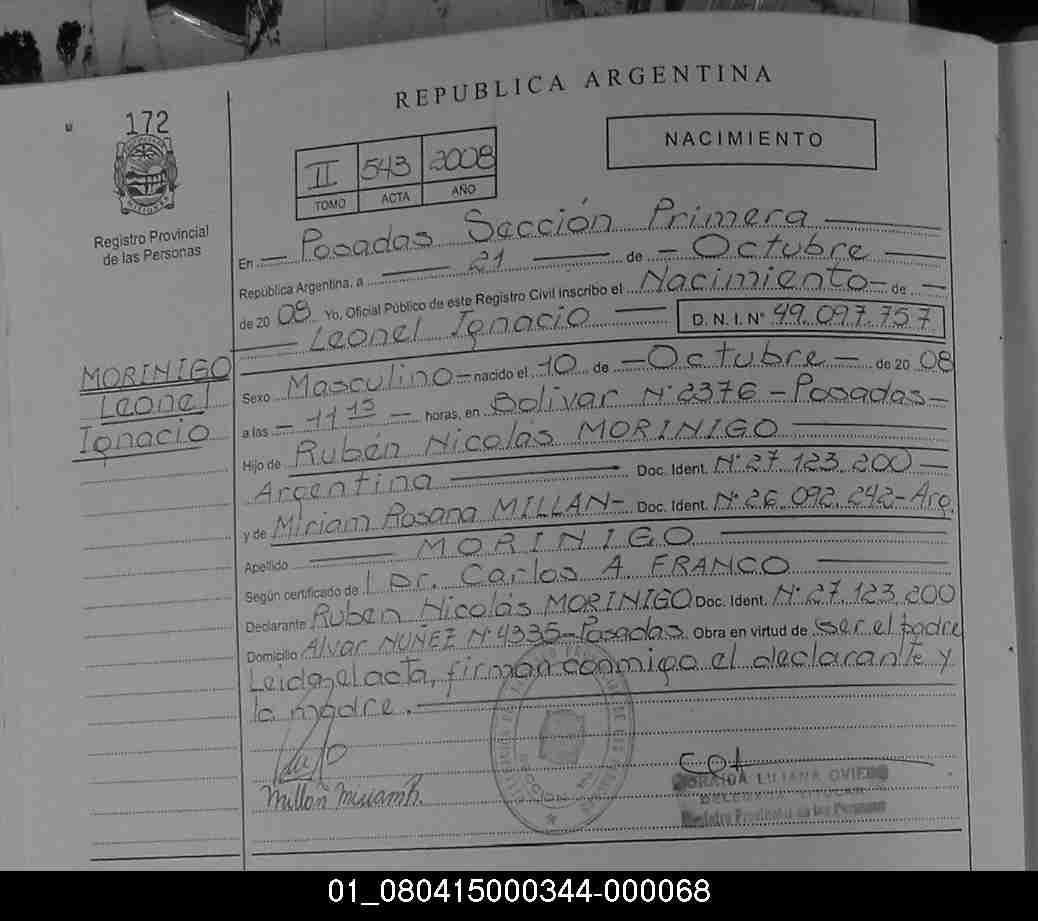 REPUBLICA ARGENTINA
172
NACIMIENTO
II 543 2008
TOMO ACTA AÑO
Registro Provincial
de las Personas
En — Posadas Sección Primera —
República Argentina, a — 21 — de — Octubre —
de 20 08 Yo, Oficial Público de este Registro Civil inscribo el Nacimiento — de —
— Leonel Ignacio — D.N.I.Nº 49.097.757
MORINIGO
Leonel
Ignacio
Sexo Masculino — nacido el 10 de — Octubre — de 20 08
a las — 11 15 — horas, en Bolivar Nº 2376 — Posadas —
Hijo de Rubén Nicolás MORINIGO —
Argentina — Doc. Ident. Nº 27.123.200 —
y de Miriam Rosana MILLAN — Doc. Ident. Nº 26.092.242 — Arg.
Apellido — MORINIGO —
Según certificado de Dr. Carlos A. FRANCO —
Declarante Ruben Nicolás MORINIGO Doc. Ident. Nº 27.123.200
Domicilio Alvar NUÑEZ Nº 4335 — Posadas Obra en virtud de ser el padre
Leída el acta, firman conmigo el declarante y
la madre. —
Millan Miriam R.
LILIANA OVIEDO
Registro Provincial de las Personas
01_080415000344-000068